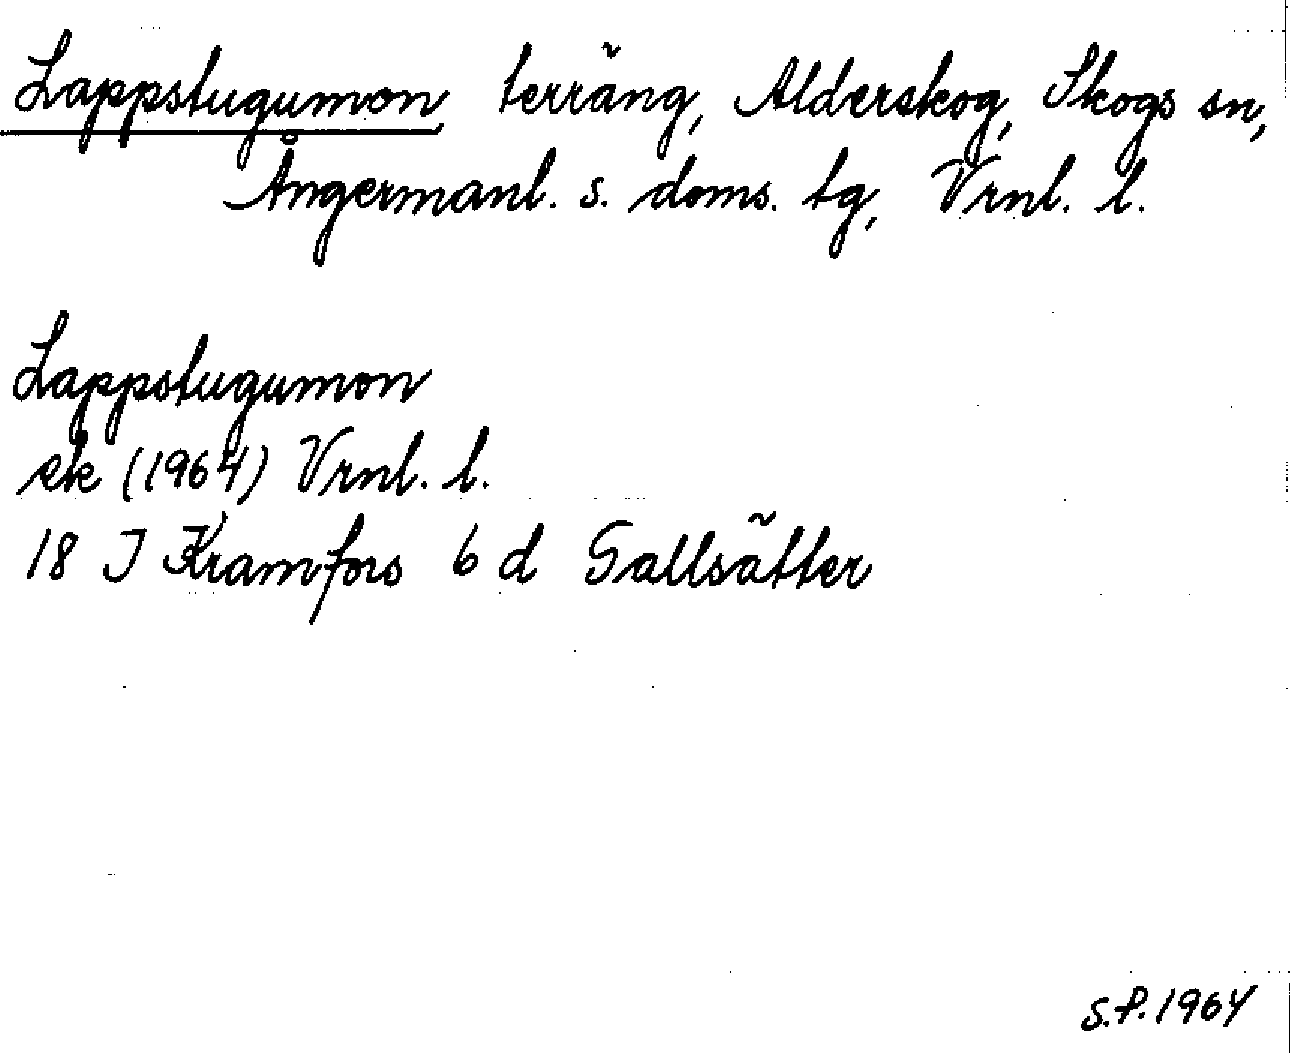 Lappstugumon, terräng, Alderskog, Skogs sn,
Ångermanl. s. doms. tg, Vrnl. l.
Lappstugumon
ek (1964) Vrnl. l.
18 J Kramfors 6 d Gallsätter
S.P. 1964